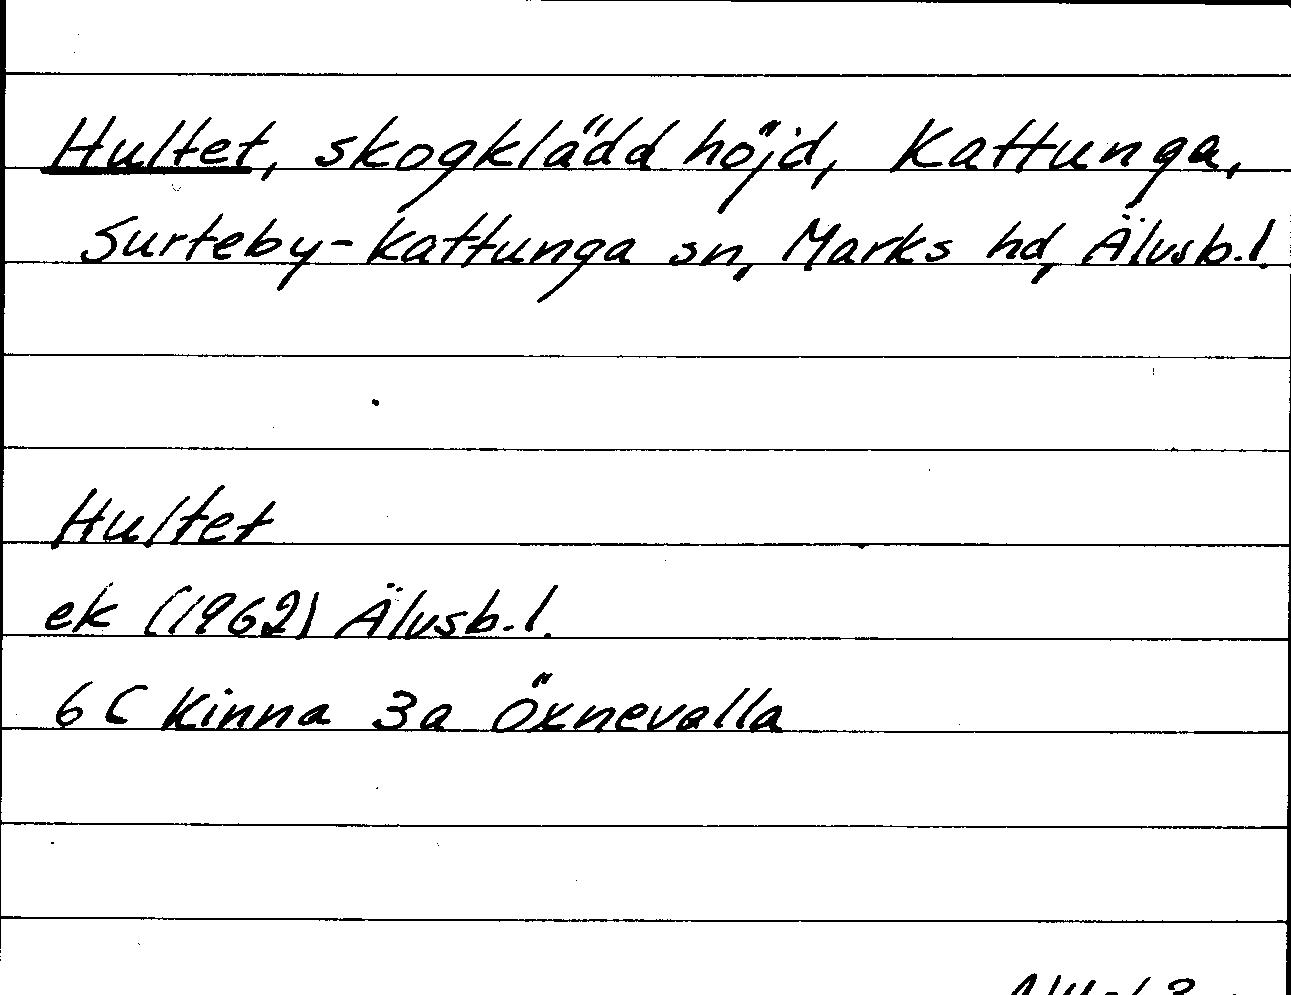 Hultet, skogklädd höjd, Kattunga,
Surteby-Kattunga sn, Marks hd, Älvsb.l.
Hultet
ek (1962) Älvsb.l.
6C Kinna 3a Öxnevalla